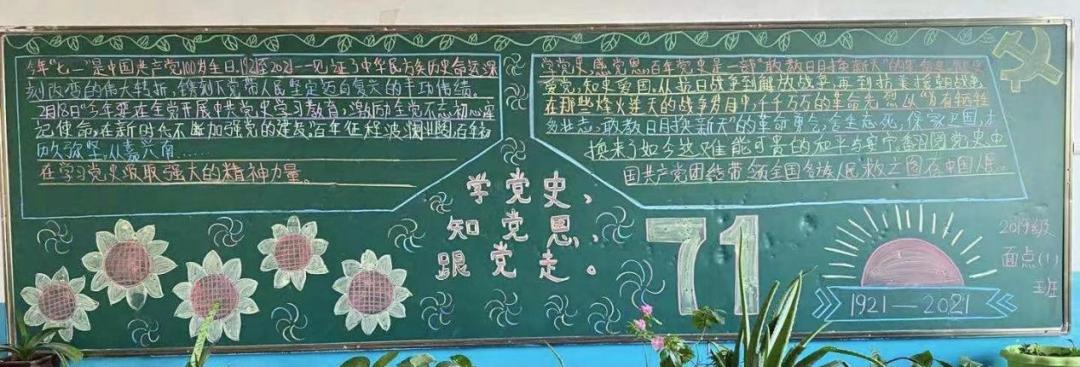 今年"七一"是中国共产党100岁生日,1921至2021一见证了中华民族历史命运深
刻改变的伟大转折,镌刻下党带人民坚定迈向复兴的丰功伟绩。
2月18日今年要在全党开展中共党史学习教育,激励全党不忘初心牢
记使命,在新时代不断加强党的建设百年征程波澜壮阔百年初
心久弥坚,从嘉兴南......
在学习党史汲取强大的精神力量。
学党史感党恩百年党史是一部"敢教日月换新天"的革命
爱党,知史爱国,从抗日战争到解放战争,再到抗美援朝战争
在那些烽火连天的战争岁月中,千千万万的革命先烈以"为有牺牲
多壮志,敢教日月换新天"的革命勇气,舍生忘死,保家卫国,才
换来了如今这难能可贵的和平与安宁翻阅党史中
国共产党团结带领全国各族人民救之国在中国人民
学党史、
知党恩、
跟党走。
71
1921—2021
2019级
面点(1)
班